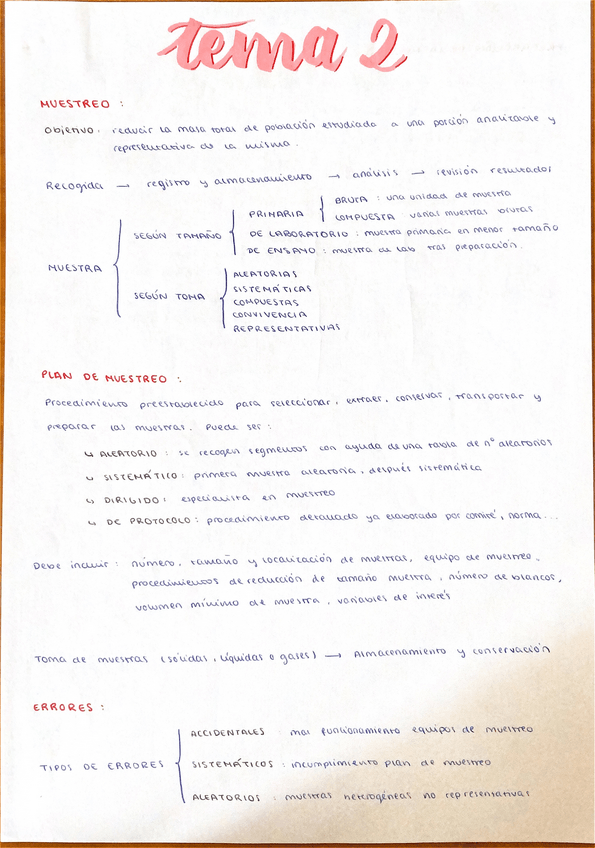 tema 2
MUESTREO :
Objetivo: reducir la masa total de población estudiada a una porción analizable y
representativa de la misma.
Recogida → registro y almacenamiento → análisis → revisión resultados
MUESTRA
SEGÚN TAMAÑO
PRIMARIA
BRUTA : una unidad de muestra
COMPUESTA varias muestras brutas
DE LABORATORIO : muestra primaria en menor tamaño
DE ENSAYO : muestra de lab tras preparación.
SEGÚN TOMA
ALEATORIAS
SISTEMÁTICAS
COMPUESTAS
CONVIVENCIA
REPRESENTATIVAS
PLAN DE MUESTREO :
Procedimiento preestablecido para seleccionar, extraer, conservar, transportar y
preparar las muestras. Puede ser :
↳ ALEATORIO : se recogen segmentos con ayuda de una tabla de nº aleatorios
↳ SISTEMÁTICO : primera muestra aleatoria, después sistemática
↳ DIRIGIDO : especialista en muestreo
↳ DE PROTOCOLO : procedimiento detallado ya elaborado por comité, norma...
Debe incluir : número, tamaño y localización de muestras, equipo de muestreo,
procedimientos de reducción de tamaño muestra, número de blancos,
volumen mínimo de muestra, variables de interés
Toma de muestras (sólidas, líquidas o gases) → Almacenamiento y conservación
ERRORES :
TIPOS DE ERRORES
ACCIDENTALES : mal funcionamiento equipos de muestreo
SISTEMÁTICOS : incumplimiento plan de muestreo
ALEATORIOS : muestras heterogéneas no representativas